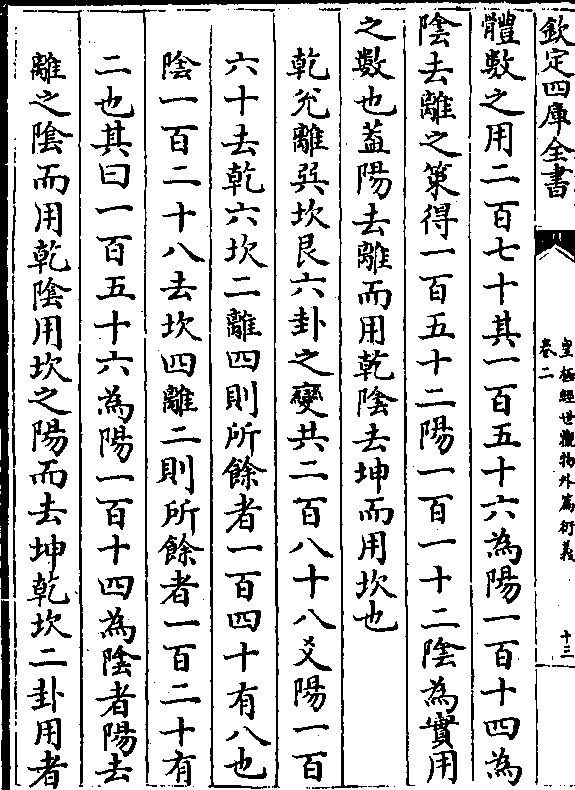 欽定四庫全書
皇極經世觀物外篇衍義
卷二
十三
體數之用二百七十其一百五十六為陽一百十四為
陰去離之策得一百五十二陽一百一十二陰為實用
之數也葢陽去離而用乾陰去坤而用坎也
乾兊離巽坎艮六卦之變共二百八十八爻陽一百
六十去乾六坎二離四則所餘者一百四十有八也
陰一百二十八去坎四離二則所餘者一百二十有
二也其曰一百五十六為陽一百十四為陰者陽去
離之陰而用乾陰用坎之陽而去坤乾坎二卦用者